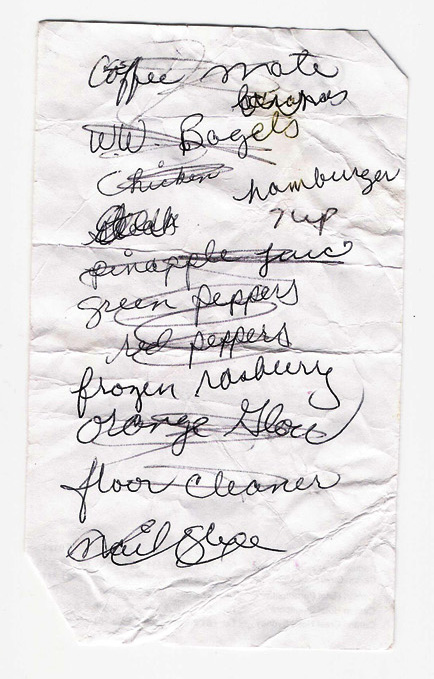 Coffee mate
bananas
WW. Bagels
Chicken
hamburger
7up
pineapple juic
green peppers
red peppers
frozen rasbury
orange Glow
floor cleaner
nail glue